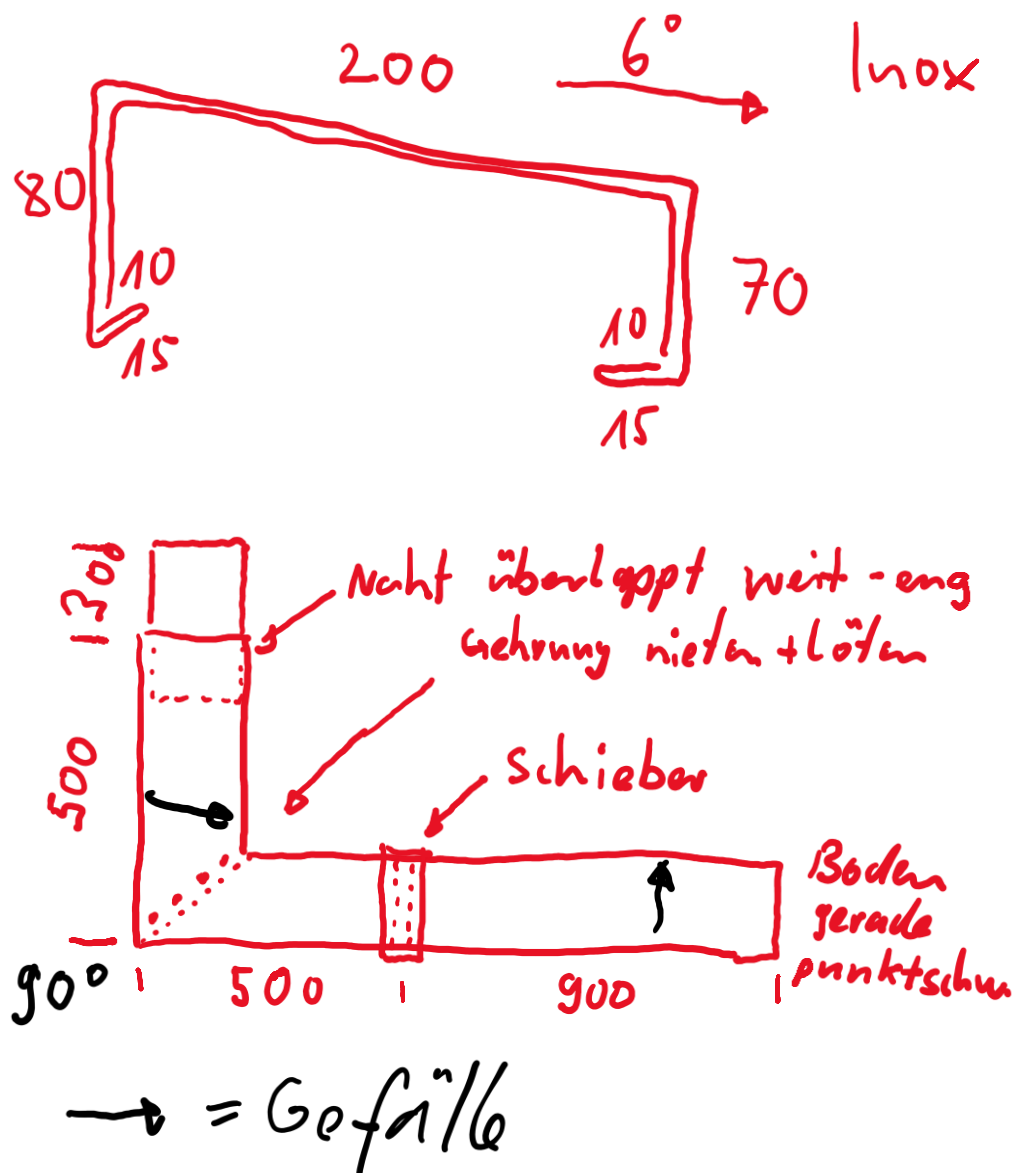 200
6°
Inox
80
10
15
70
10
15
Naht überlappt weit-eng
Gehrung nieten + löten
1300
500
Schieber
Boden
gerade
punktschw.
90°
500
900
→ = Gefälle